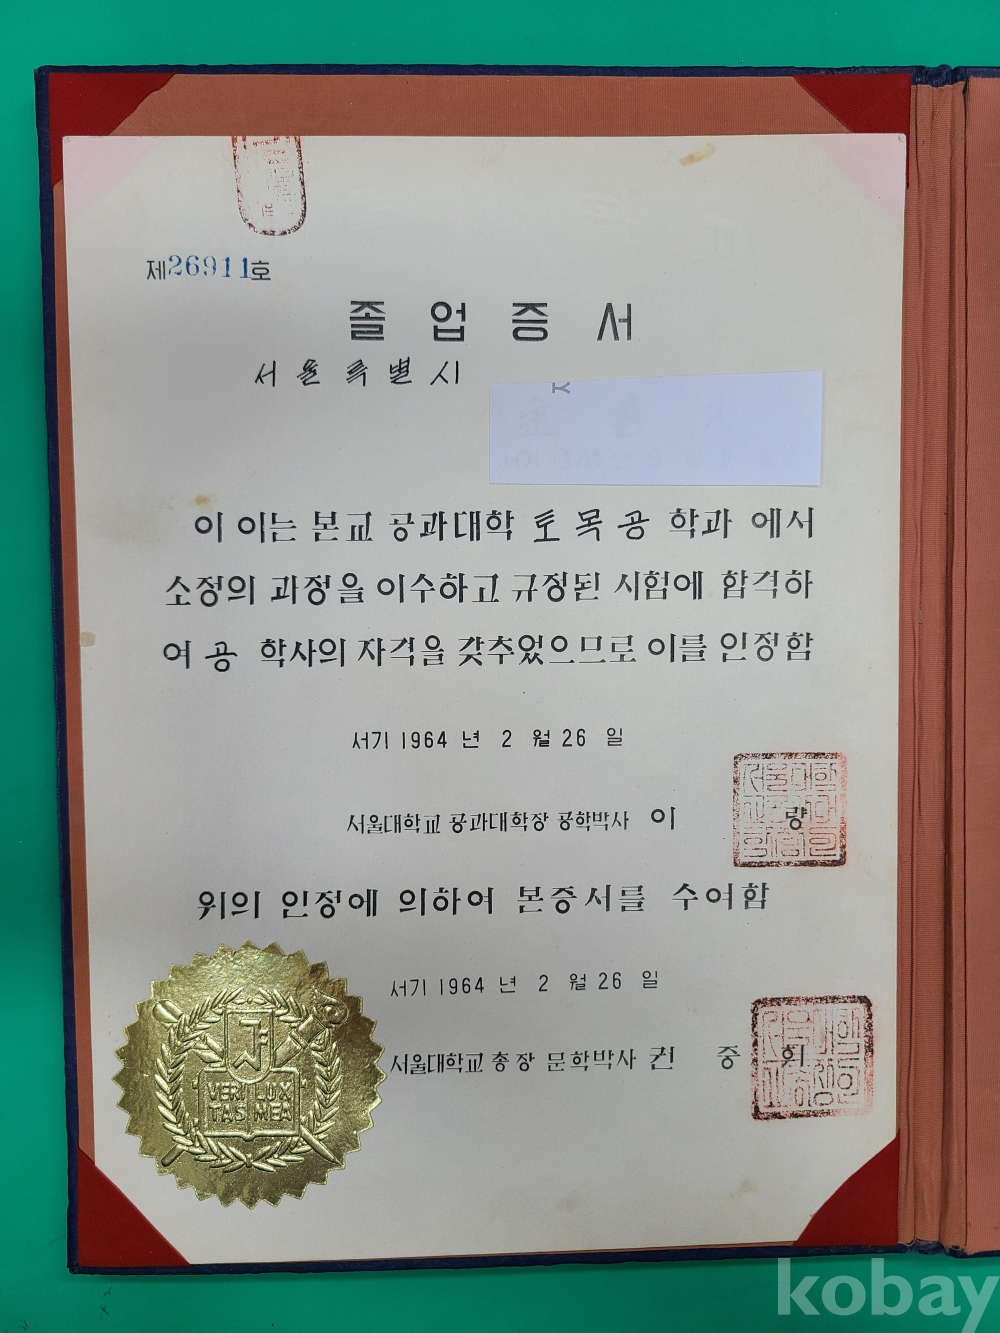 제26911호
졸업증서
서울특별시
이 이는 본교 공과대학 토목공 학과 에서
소정의 과정을 이수하고 규정된 시험에 합격하
여 공 학사의 자격을 갖추었으므로 이를 인정함
서기 1964 년 2 월 26 일
서울대학교 공과대학장 공학박사 이 량
위의 인정에 의하여 본증서를 수여함
서기 1964 년 2 월 26 일
서울대학교 총장 문학박사 권 중 휘
VERI LUX
TAS MEA
kobay